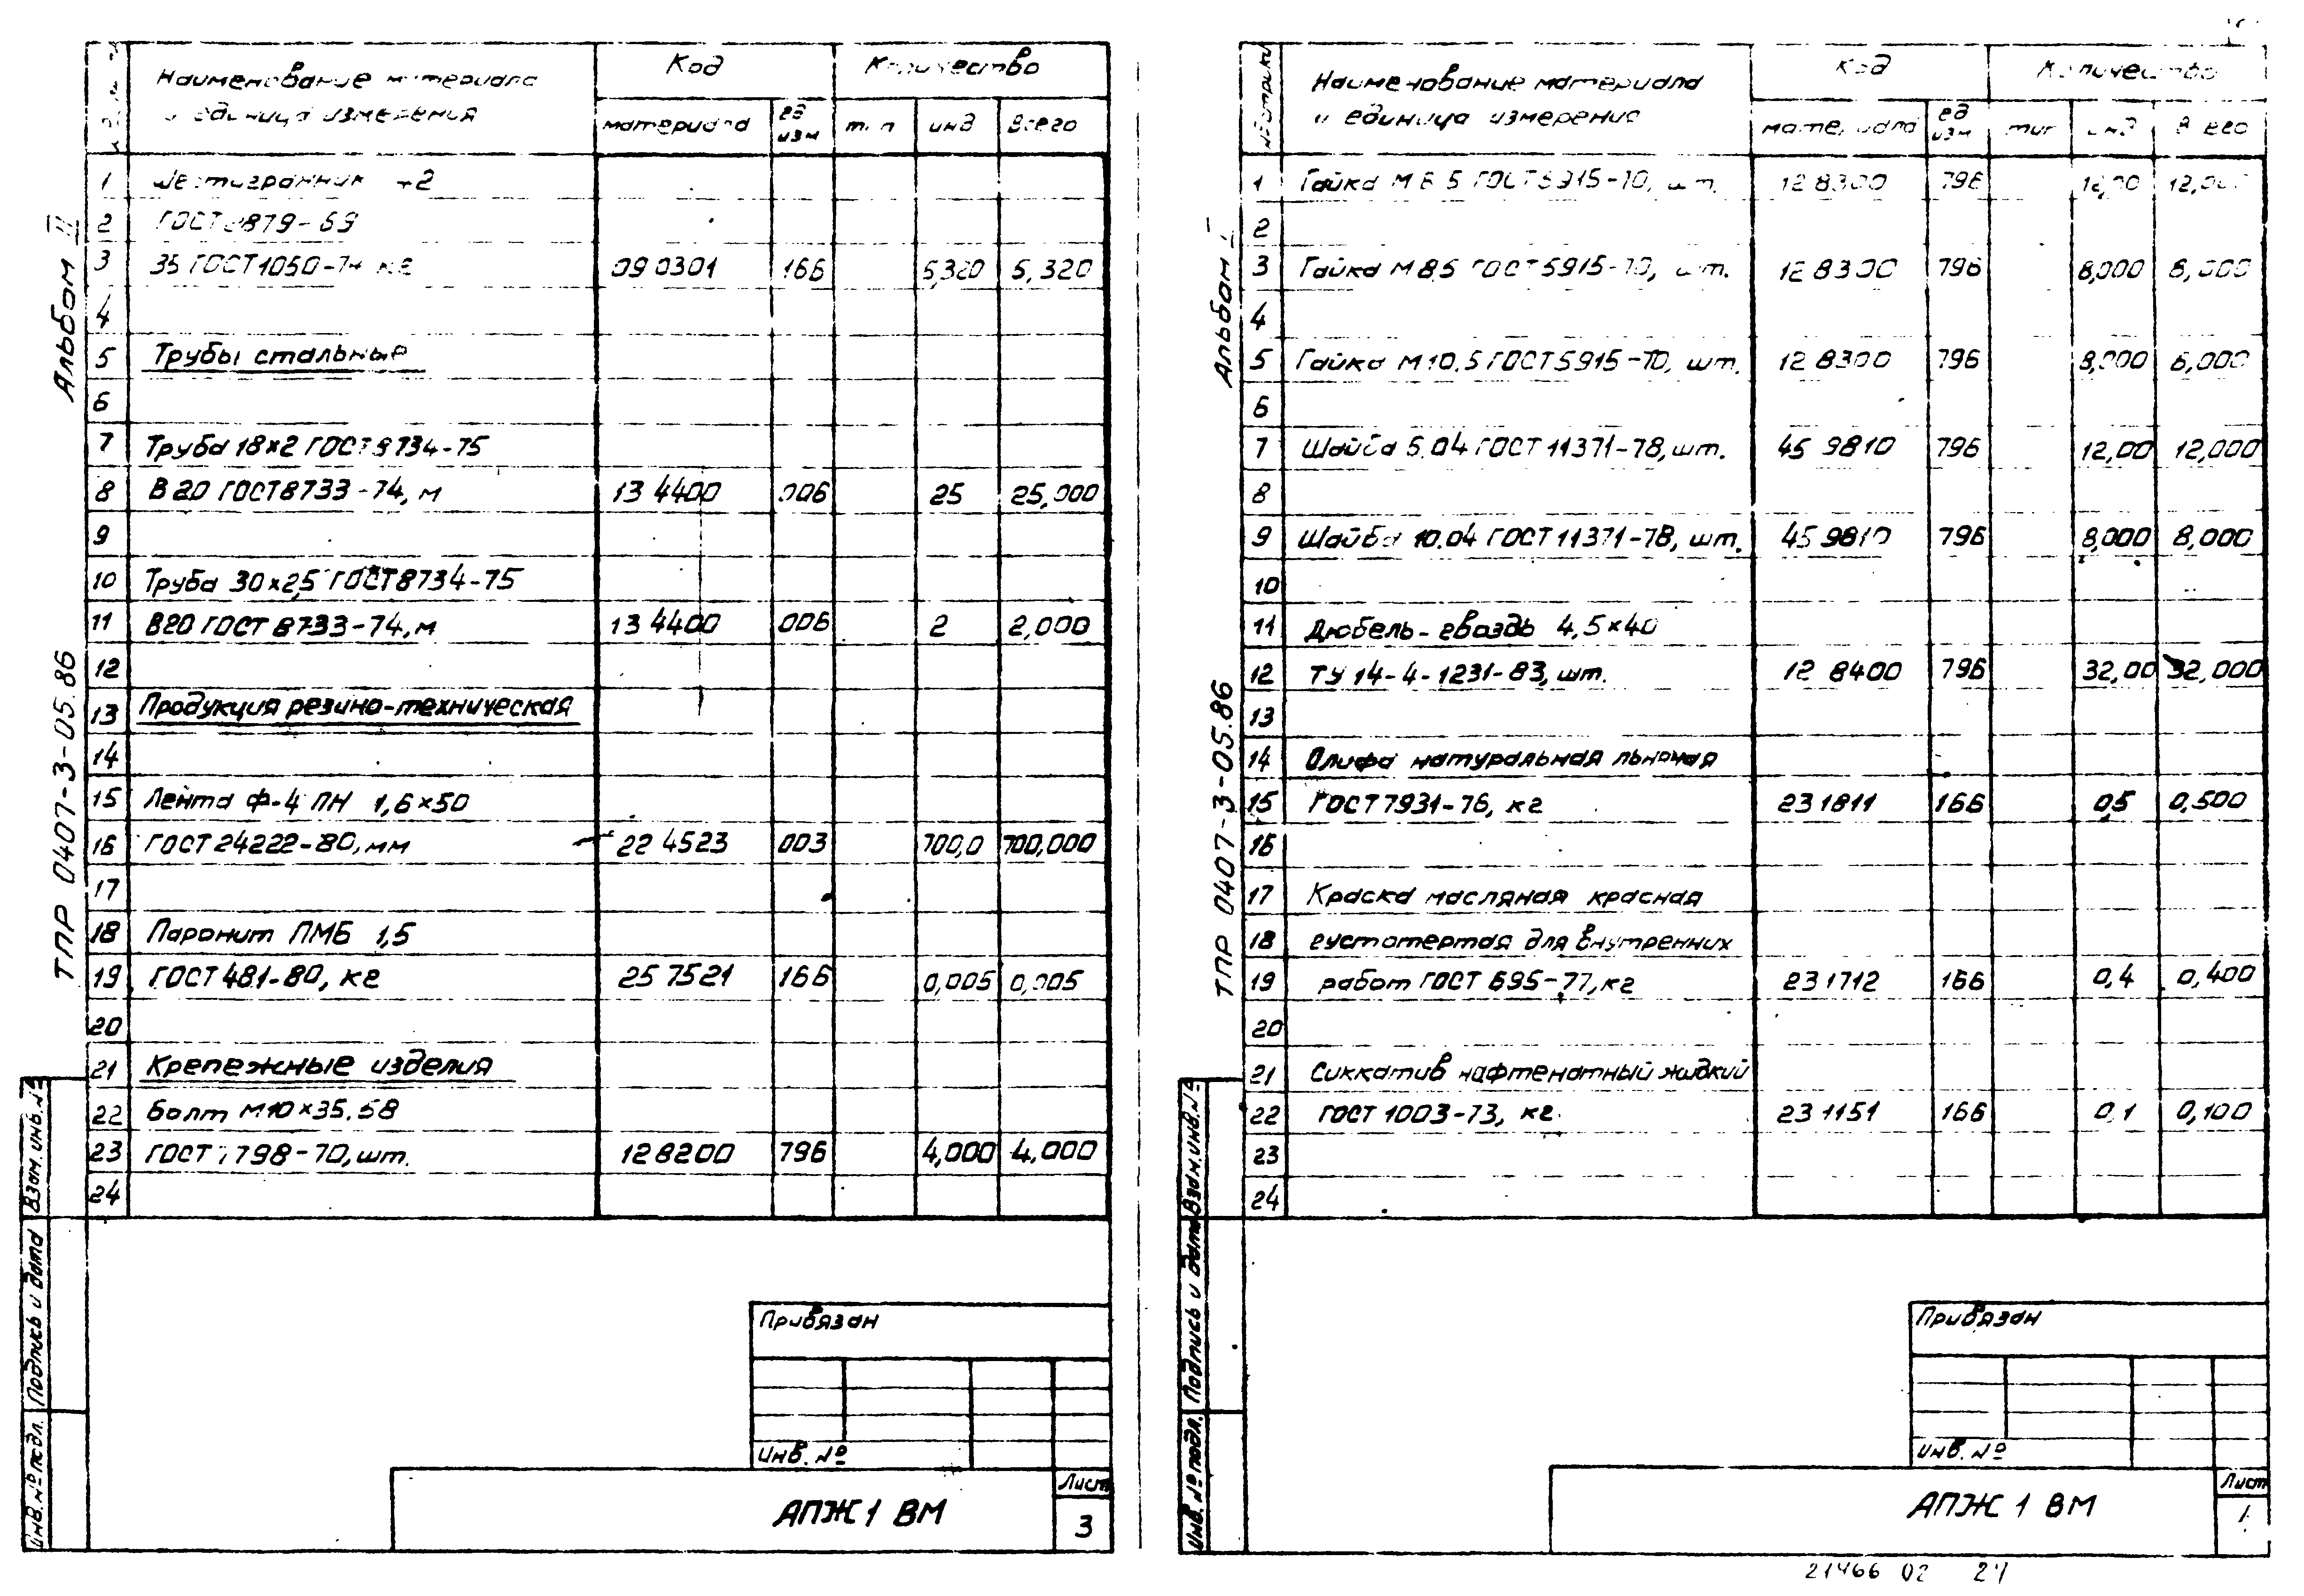 Наименование материала
и единица измерения
Код
Количество
материала
ед
изм
тип
инд
всего
1 Шестигранник
2 ГОСТ 8879-69
3 35 ГОСТ 1050-74 кг 09 0301 166 5,320 5,320
4
5 Трубы стальные
6
7 Труба 18×2 ГОСТ 8734-75
8 В 20 ГОСТ 8733-74, м 13 4400 006 25 25,000
9
10 Труба 30×2,5 ГОСТ 8734-75
11 В20 ГОСТ 8733-74, м 13 4400 006 2 2,000
12
13 Продукция резино-техническая
14
15 Лента Ф-4 ПН 1,6×50
16 ГОСТ 24222-80, мм 22 4523 003 700,0 700,000
17
18 Паронит ПМБ 1,5
19 ГОСТ 481-80, кг 25 7521 166 0,005 0,005
20
21 Крепежные изделия
22 Болт М10×35.58
23 ГОСТ 7798-70, шт. 12 8200 796 4,000 4,000
24
Альбом II
ТПР 0407-3-05.86
Взам. инв. №
Подпись и дата
Инв. № подл.
Привязан
Инв. №
АПЖ 1 ВМ
Лист
3
№ строки
Наименование материала
и единица измерения
Код
Количество
материала
ед
изм
тип
инд
Всего
1 Гайка М 6 5 ГОСТ 5915-70, шт. 12 8300 796 12,00 12,000
2
3 Гайка М 8 5 ГОСТ 5915-70, шт. 12 8300 796 8,000 8,000
4
5 Гайка М 10.5 ГОСТ 5915-70, шт. 12 8300 796 8,000 8,000
6
7 Шайба 5.04 ГОСТ 11371-78, шт. 45 9810 796 12,00 12,000
8
9 Шайба 10.04 ГОСТ 11371-78, шт. 45 9810 796 8,000 8,000
10
11 Дюбель-гвоздь 4,5×40
12 ТУ 14-4-1231-83, шт. 12 8400 796 32,00 32,000
13
14 Олифа натуральная льняная
15 ГОСТ 7931-76, кг 23 1811 166 0,5 0,500
16
17 Краска масляная красная
18 густотертая для внутренних
19 работ ГОСТ 695-77, кг 23 1712 166 0,4 0,400
20
21 Сиккатив нафтенатный жидкий
22 ГОСТ 1003-73, кг. 23 1151 166 0,1 0,100
23
24
Альбом
ТПР 0407-3-05.86
Взам. инв. №
Подпись и дата
Инв. № подл.
Привязан
Инв. №
АПЖ 1 ВМ
Лист
21466 02 24